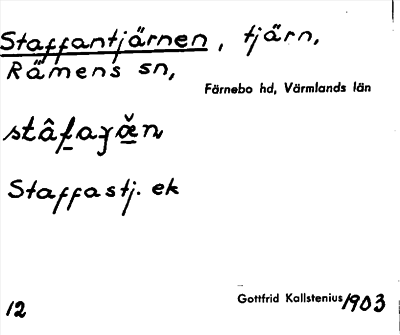 Staffantjärnen, tjärn,
Rämens sn,
Färnebo hd, Värmlands län
Staffastj. ek
12
Gottfrid Kallstenius 1903